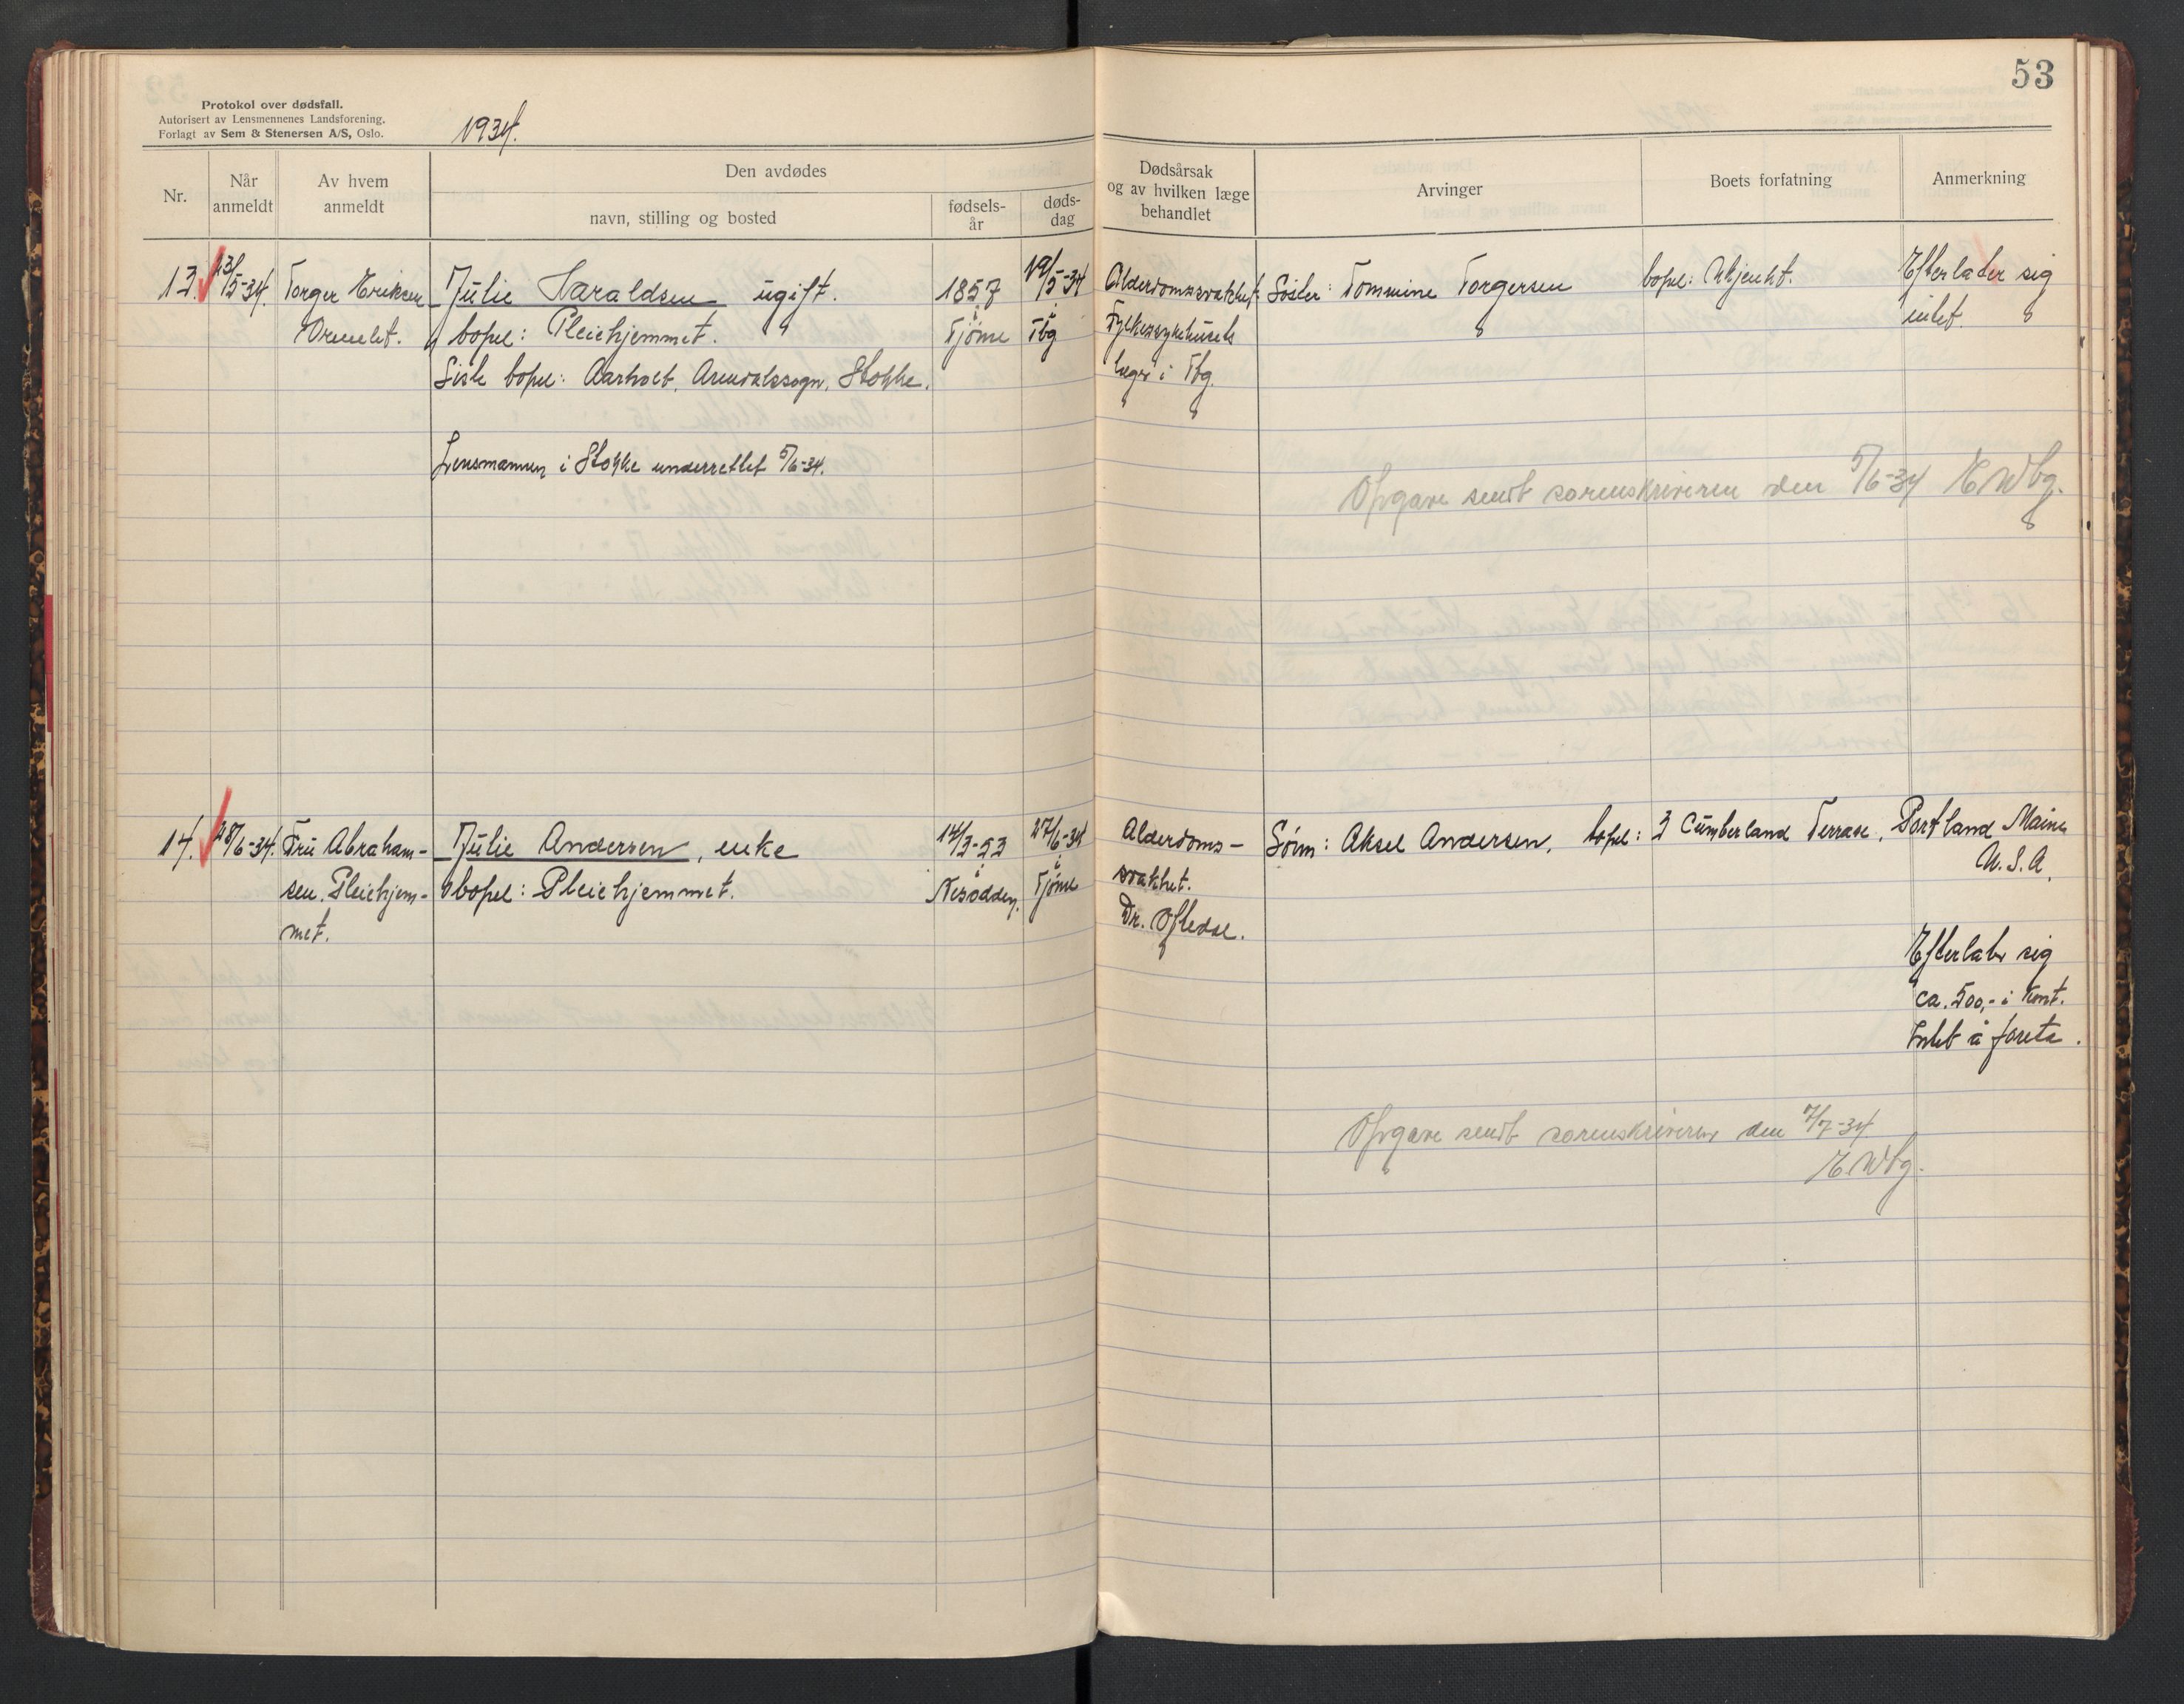 53
Protokol over dødsfall.
Autorisert av Lensmennenes Landsforening.
Forlagt av Sem & Stenersen A/S, Oslo.
1934.
Nr.
Når anmeldt
Av hvem anmeldt
Den avdødes
navn, stilling og bosted
fødsels-år
døds-dag
Dødsårsak og av hvilken læge behandlet
Arvinger
Boets forfatning
Anmerkning
13. 23/5-34. Torger Eriksen Julie Haraldsen ugift. 1857 19/5-34 Alderdomssvakhet Søster: Tommine Torgersen bopel: Ukjent. Efterlader sig
Ormelet. bopel: Pleiehjemmet. i Tjøme i Tbg Fylkessykehusets intet.
Siste bopel: Aarholt, Arendalssogn, Stokke. læger i Tbg.
Lensmannen i Stokke underrettet 5/6-34.
Opgave sendt sorenskriveren den 5/6-34 E Wbg.
14. 28/6-34. Fru Abraham- Julie Andersen, enke 14/3-53 27/6-34 Alderdoms- Sønn: Aksel Andersen, bopel: 3 Cumberland Terrase, Portland Maine
U.S.A.
sen. Pleiehjem- bopel: Pleiehjemmet. i Nesodden. i Tjøme svakhet.
met. Dr. Oftedal.
Efterlater sig
ca. 500,- i kont.
Intet å foreta.
Opgave sendt sorenskriveren den 7/7-34
E. Wbg.